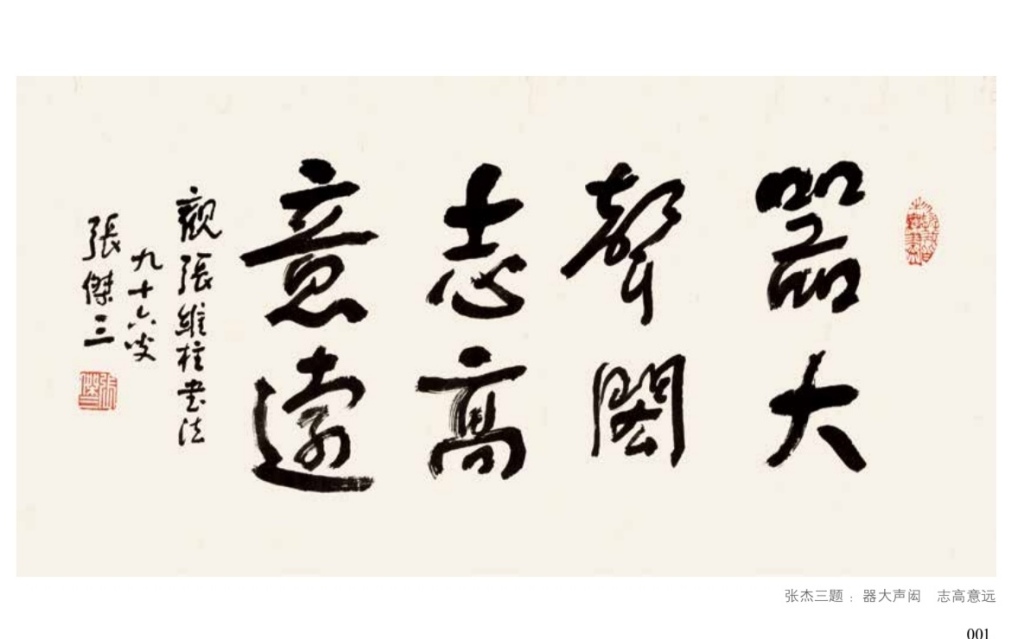 器大
聲閎
志高
意遠
觀張維柱书法
九十六叟
張傑三
张杰三题：器大声闳　志高意远
001